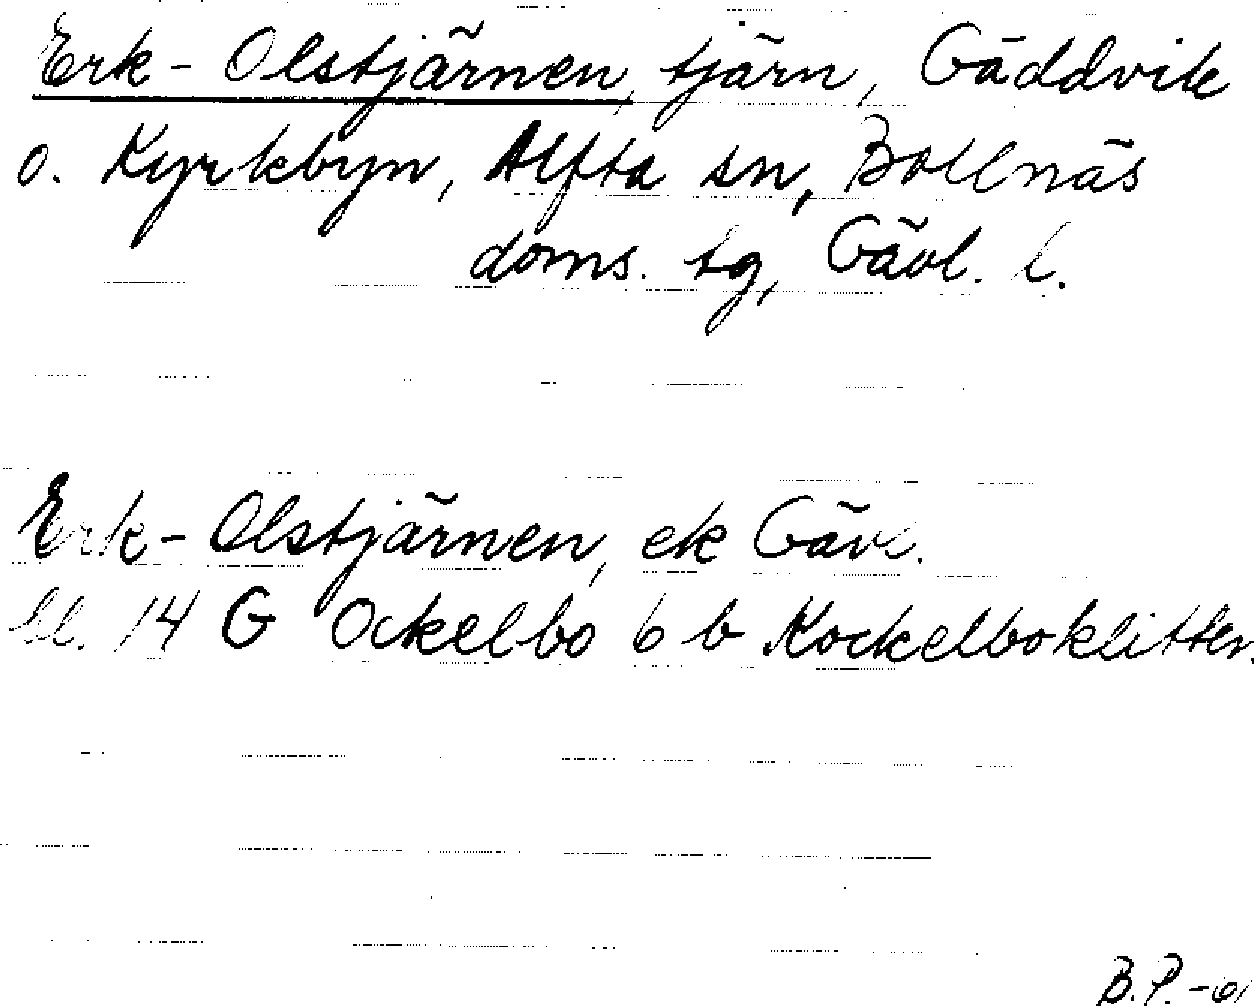 Erk-Olstjärnen, tjärn, Gäddvik
o. Kyrkbyn, Alfta sn, Bollnäs
doms. tg, Gävl. l.
Erk-Olstjärnen, ek Gävl.
bl. 14 G Ockelbo 6 b Kockelboklitten.
B.P. -61